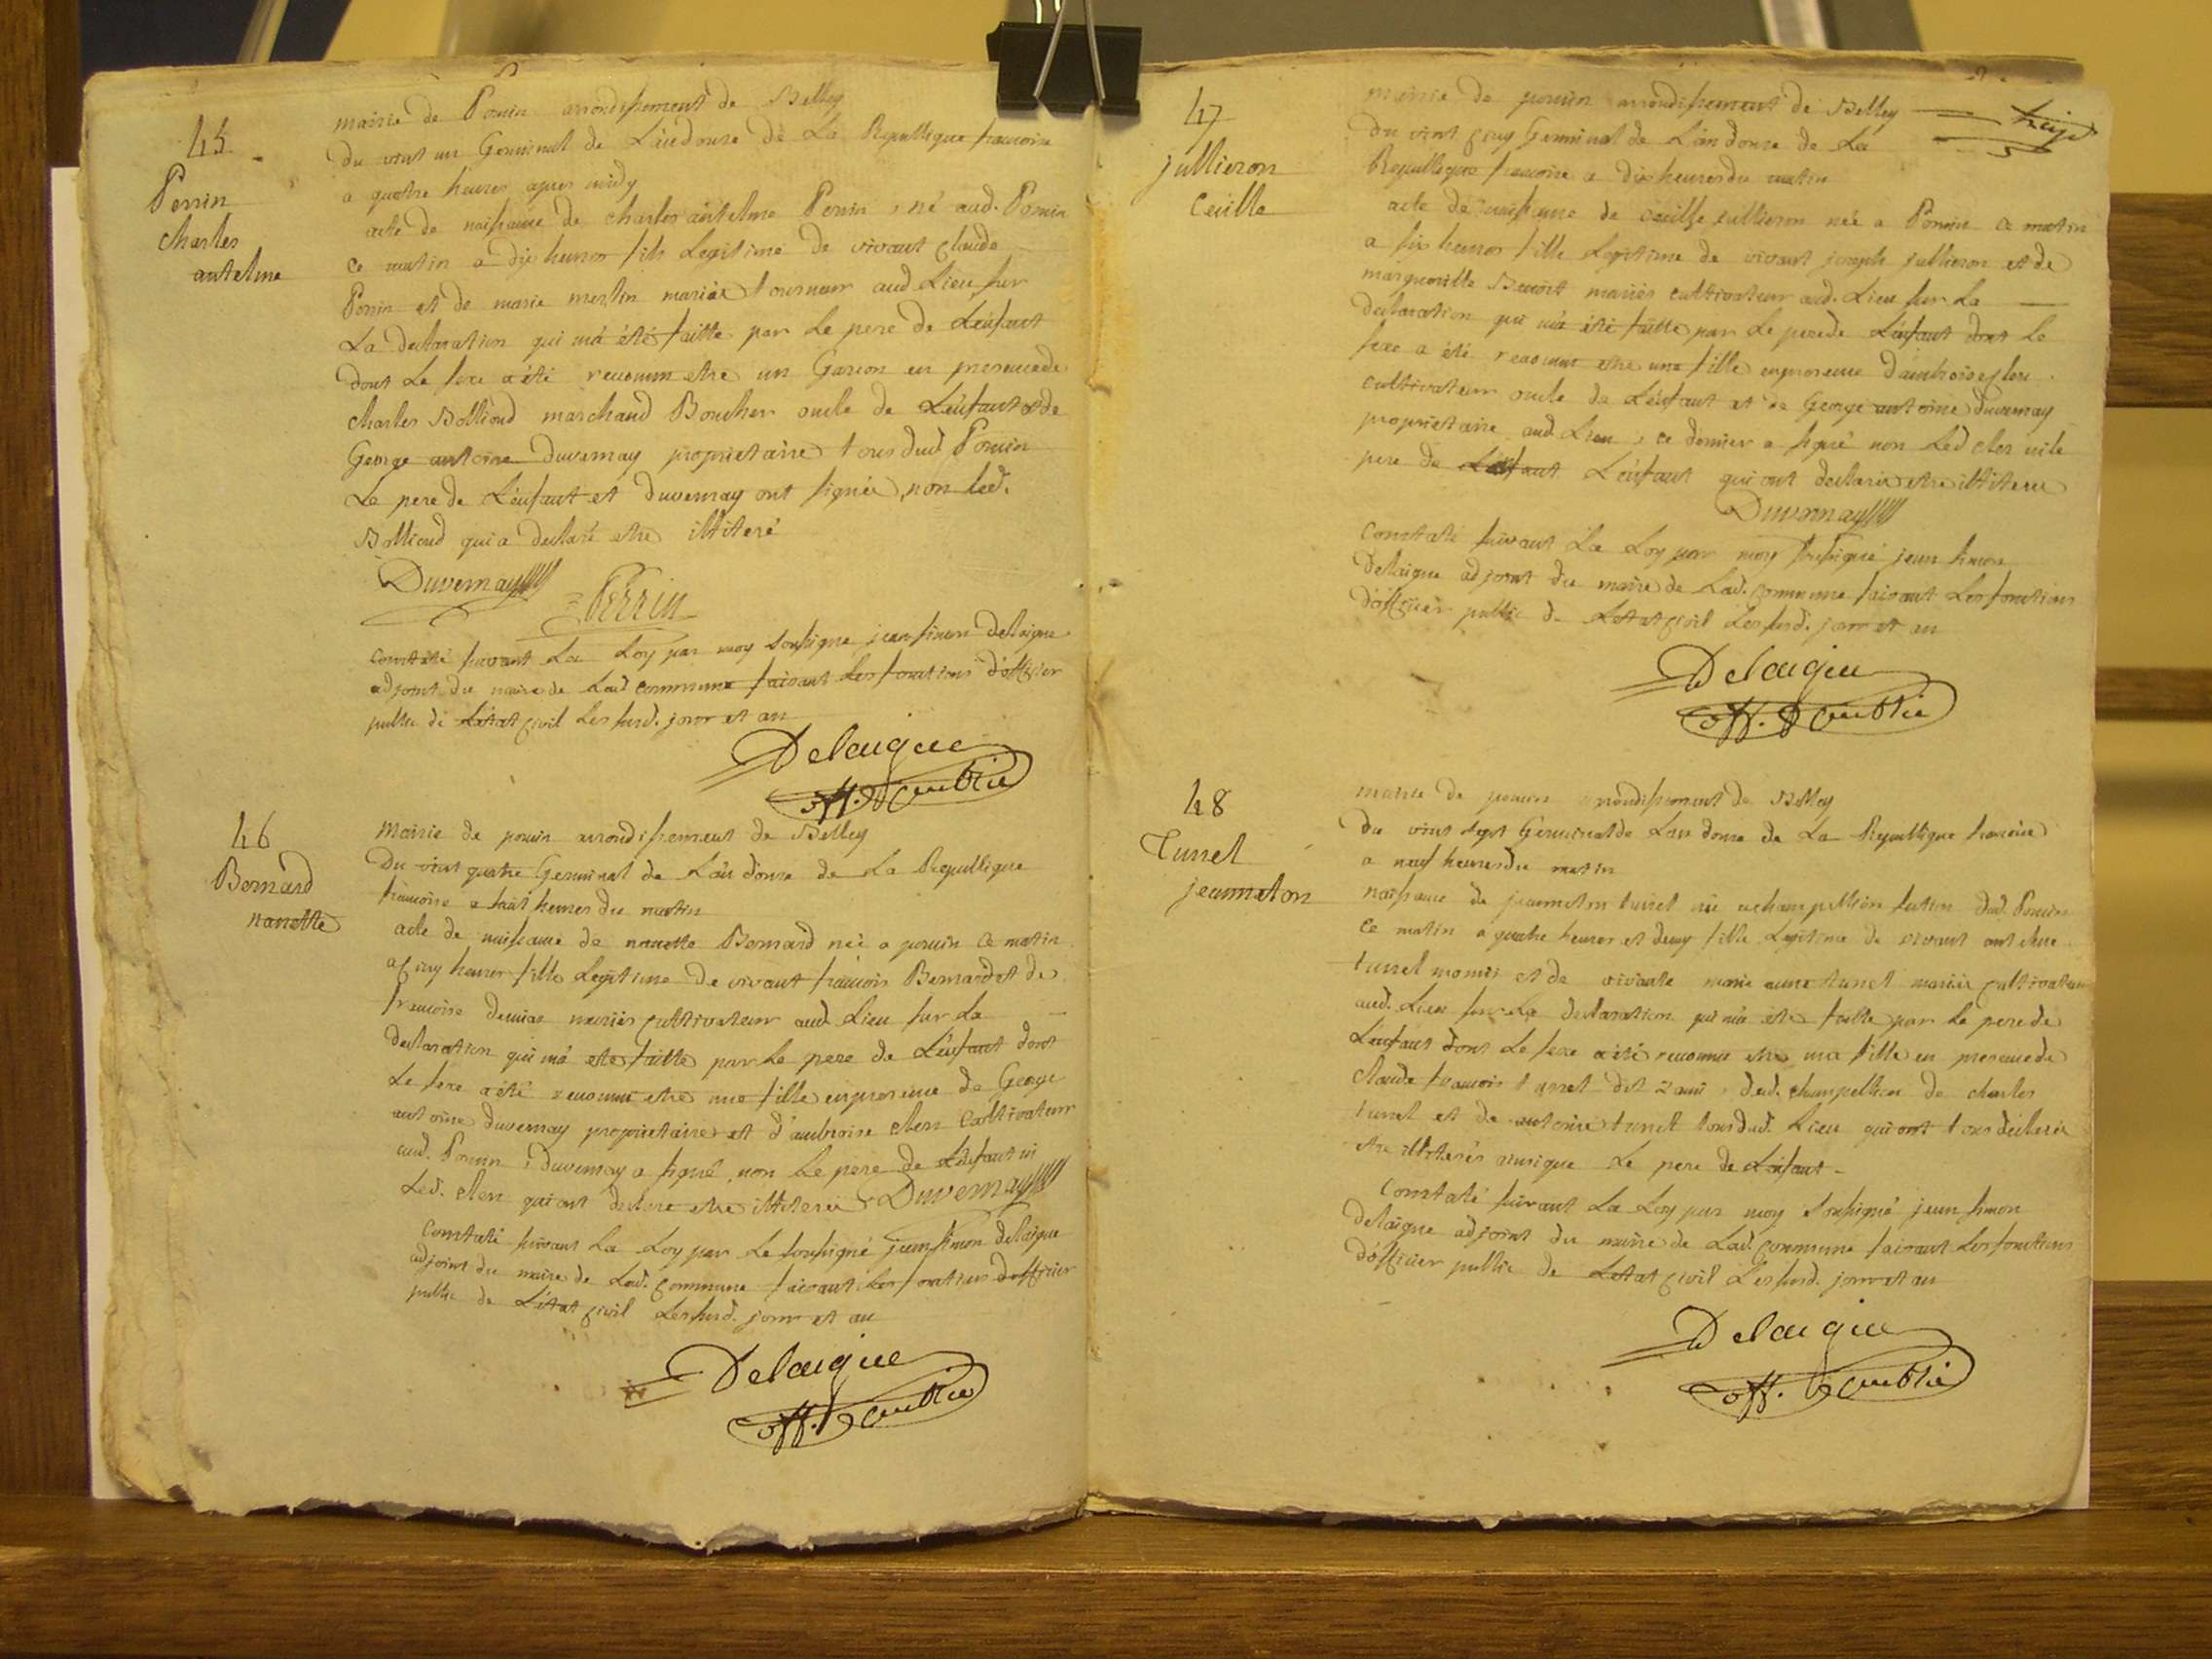 45
Perrin
charles
antelme
mairie de Poncin arrondissement de Belley
du vint un Germinal de L'an douze de La Republlique francoise
a quatre heures apres midy
acte de naissance de charles antelme Perrin, né aud. Poncin
ce matin a dix heures fils Legitime de vivant claude
Perrin et de marie merlin mariés tourneur aud Lieu sur
La declaration qui m'a été faitte par Le pere de L'enfant
dont Le sexe a été reconnu etre un Garcon en presence de
charles Bolliond marchand Boucher oncle de L'enfant et de
George antoine Duvernay proprietaire tous dud Poncin
Le pere de L'enfant et Duvernay ont signés, non led.
Bolliond qui a declaré etre illiteré
Duvernay
Perrin
constaté suivant La Loy par moy soussigné jean simon delaigue
adjoint du maire de Lad commune faisant Les fonctions d'officier
public de L'état civil Les susd. jour et an
Delaigue
off. publie
46
Bernard
nanette
mairie de poncin arrondissement de Belley
Du vint quatre Germinal de L'an douze de La Republlique
francoise a huit heures du matin
acte de naissance de nanette Bernard née a poncin ce matin
a cinq heures fille Legitime de vivant francois Bernard et de
francoise mariés cultivateur aud Lieu sur La
declaration qui m'a ete faitte par Le pere de L'enfant dont
Le sexe a été reconnu etre une fille en presence de George
antoine duvernay proprietaire et d'ambroise clerc cultivateur
aud. Poncin, Duvernay a signé, non Le pere de L'enfant ni
Led. clerc qui ont declare etre illiterés Duvernay
constaté suivant La Loy par Le soussigné jean simon delaigue
adjoint du maire de Lad. commune faisant Les fonctions d'officier
public de L'état civil Les susd. jour et an
Delaigue
off. publie
47
jullieron
Cecille
mairie de poncin arrondissement de Belley
treize
du vint cinq Germinal de L'an douze de La
Republlique francoise a dix heures du matin
acte de naissance de cecille jullieron née a Poncin ce matin
a six heures fille Legitime de vivant joseph jullieron et de
margueritte Benoit mariés cultivateur aud. Lieu sur La
declaration qui m'a été faitte par Le pere de L'enfant dont Le
sexe a été reconnu etre une fille en presence d'ambroise clerc
cultivateur oncle de L'enfant et de George antoine duvernay
proprietaire aud Lieu, ce dernier a signé non Led clerc ni le
pere de L'enfant L'enfant qui ont declaré etre illiteres
Duvernay
constaté suivant La Loy par moy soussigné jean simon
Delaigue adjoint du maire de Lad. commune faisant Les fonctions
d'officier public de L'etat civil Les susd. jour et an
Delaigue
off. publie
48
Turrel
jeanneton
mairie de poncin arrondissement de Belley
du vint sept Germinal de L'an douze de La Republlique francoise
a neuf heures du matin
naissance de jeanneton turrel née a champellion section dud. Poncin
ce matin a quatre heures et demy fille Legitime de vivant antelme
turrel et de vivante marie anne turrel mariés cultivateur
aud. Lieu sur La declaration qui m'a été faitte par Le pere de
L'enfant dont Le sexe a été reconnu etre une fille en presence de
claude francois turrel dit dud. champellion de charles
turrel et de antoine turrel tous dud. Lieu qui ont tous déclaré
etre illiterés ainsi que Le pere de L'enfant
constaté suivant La Loy par moy soussigné jean simon
delaigue adjoint du maire de Lad. commune faisant Les fonctions
d'officier public de L'etat civil Les susd. jour et an
Delaigue
off. publie